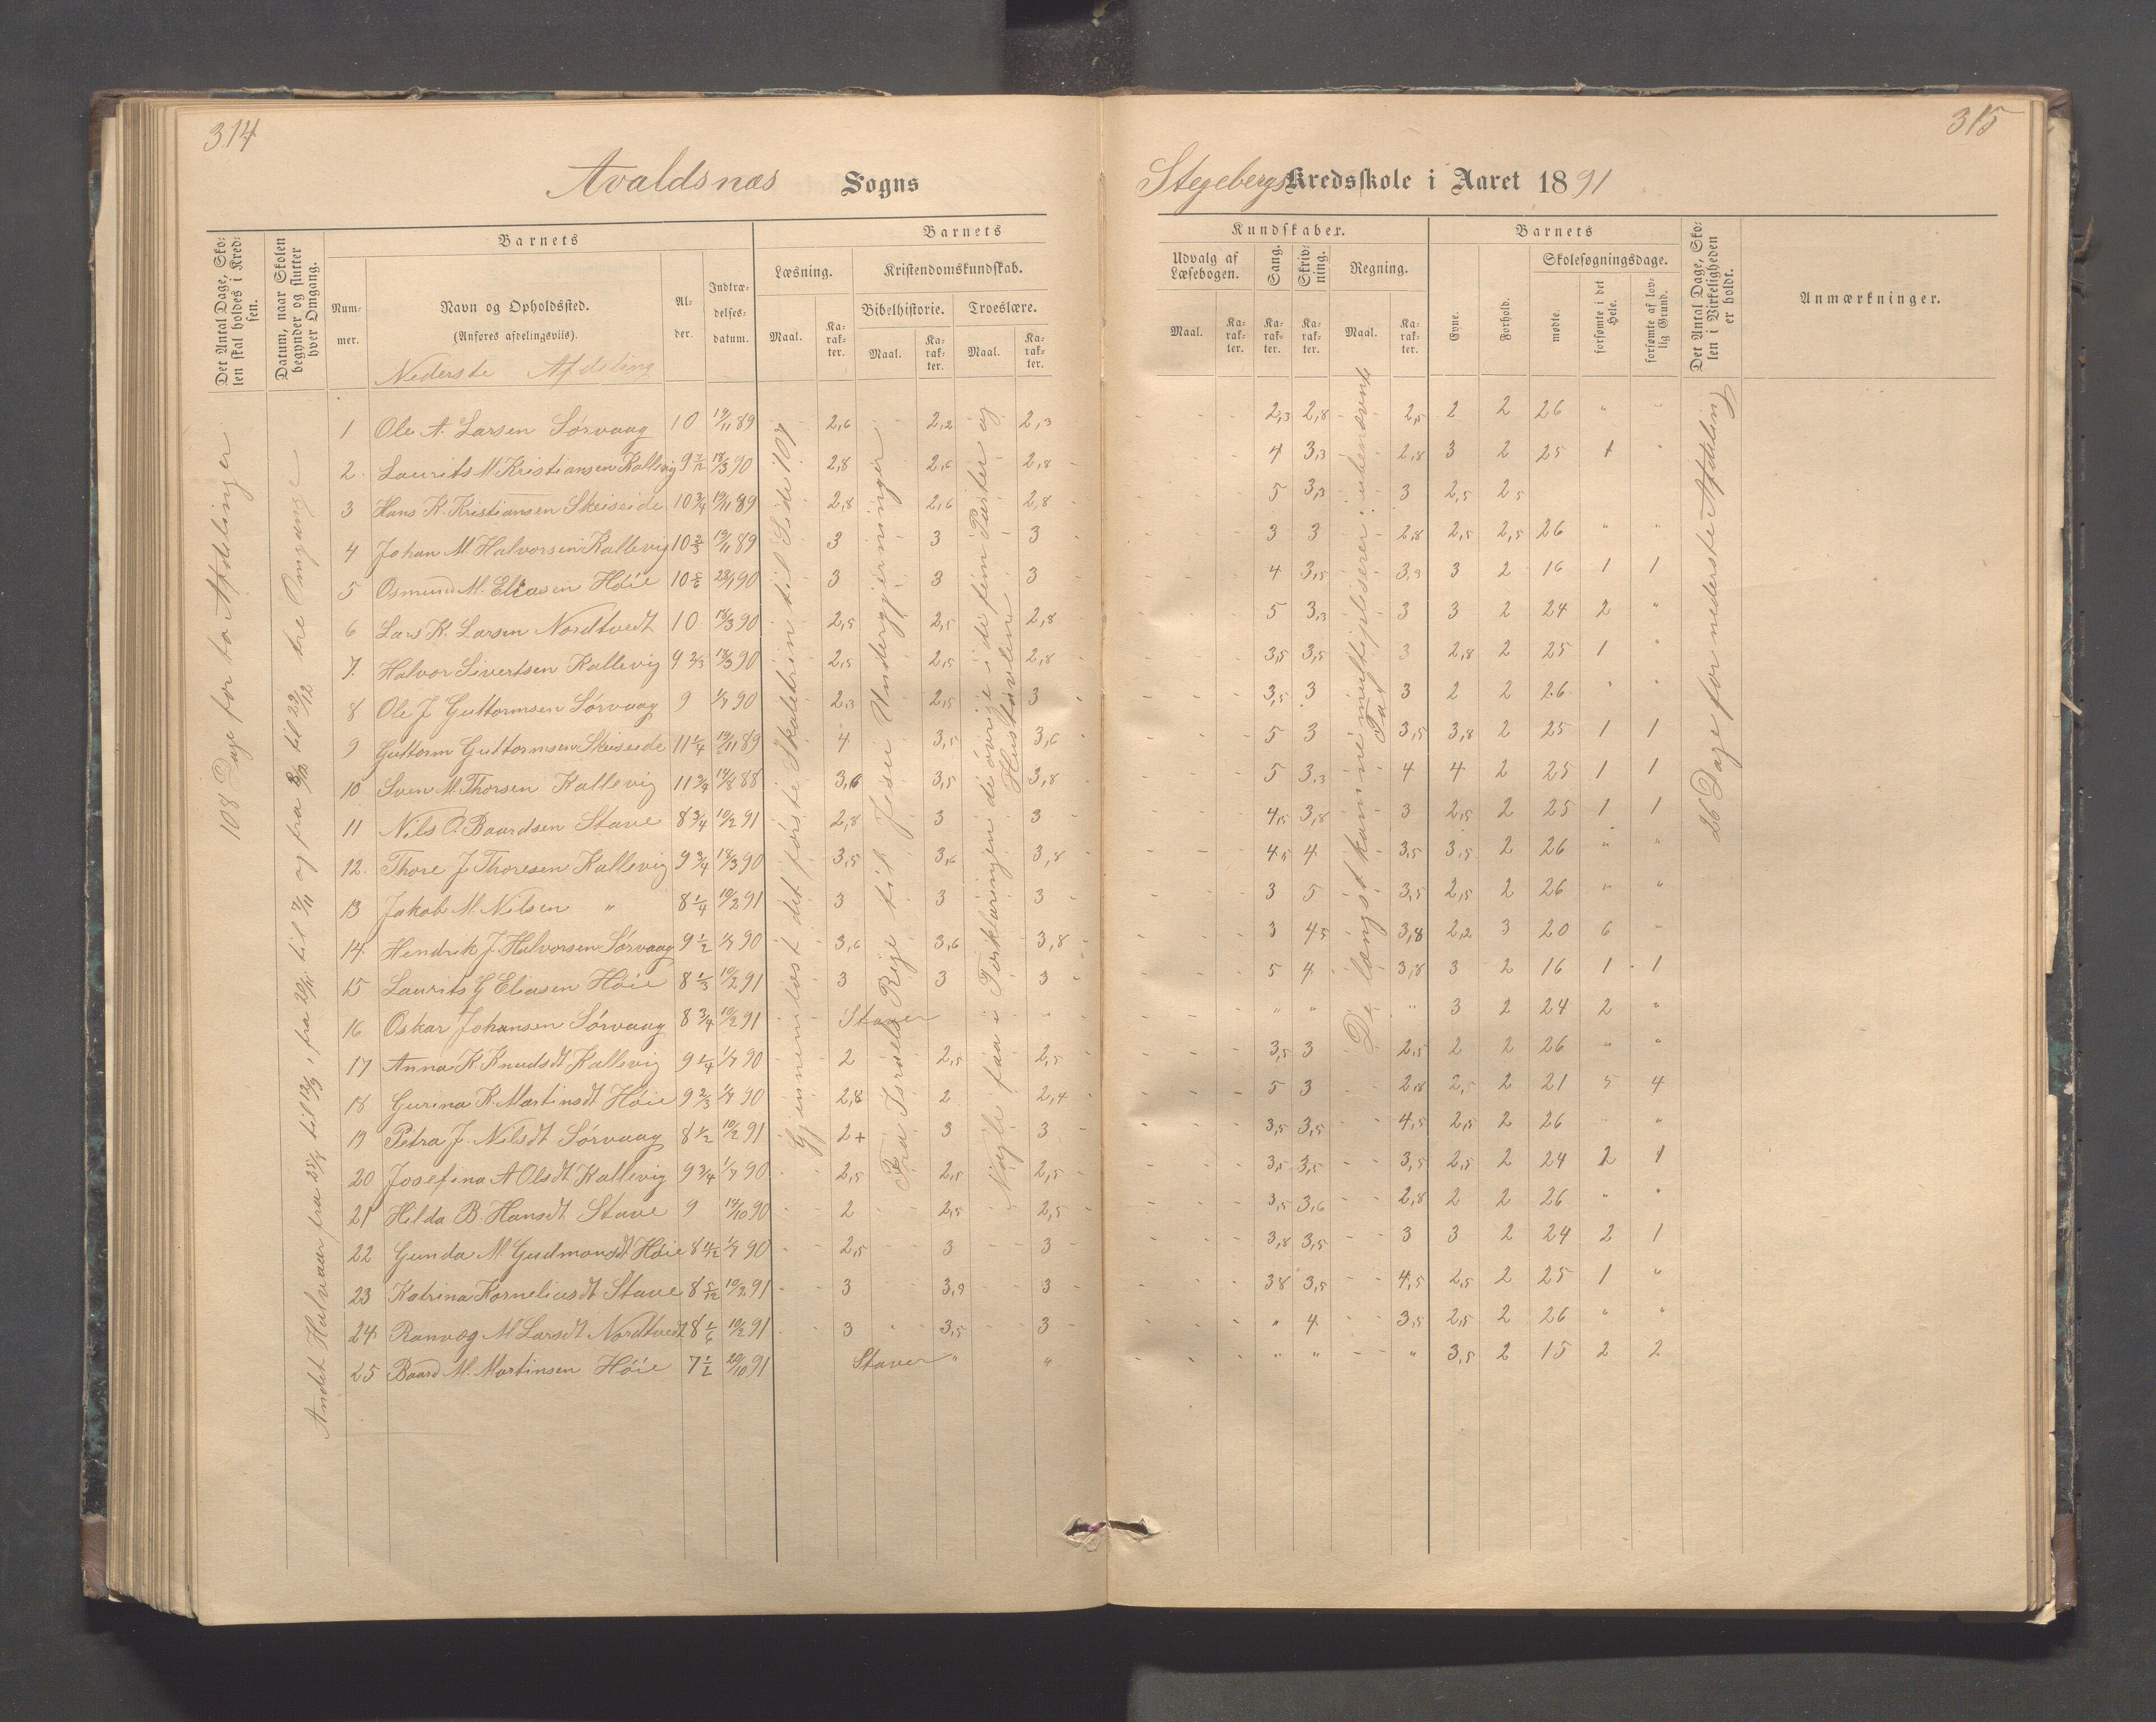 314
Avaldsnæs Sogns
Det Antal Dage, Sko-
len skal holdes i Kred-
sen.
Datum, naar Skolen
begynder og slutter
hver Omgang.
Barnets
Num-
mer.
Navn og Opholdssted.
(Anføres afdelingsviis).
Al-
der.
Indtræ-
delses-
datum.
Barnets
Læsning.
Kristendomskundskab.
Bibelhistorie.
Troeslære.
Maal.
Ka-
rak-
ter.
Maal.
Ka-
rak-
ter.
Maal.
Ka-
rak-
ter.
Nederste Afdeling
108 Dage for to Afdelinger
Andet Halvaar fra 25/8 til 12/9, fra 20/11 til 7/11 og fra 8/12 til 22/12 tre Omgange
Gjennemlæst det første Skoletrin til Side 107
Fra Israels Rige til Jesu Undergjerninger
Nogle faa i Forklaringen de øvrige i de fem Parter og
Hustavlen
1 Ole A. Larsen Sørvaag 10 19/11 89 2,6 2,2 2,3
2 Laurits M. Kristiansen Kallevig 9 7/12 18/3 90 2,8 2,6 2,8
3 Hans K. Kristiansen Skeiseide 10 3/4 19/11 89 2,8 2,6 2,8
4 Johan M. Halvorsen Kallevig 10 2/3 19/11 89 3 3 3
5 Osmund M. Eliasen Høie 10 5/6 23/1 90 3 3 3
6 Lars K. Larsen Nordtvedt 10 18/3 90 2,5 2,5 2,8
7 Halvor Sivertsen Kallevig 9 2/3 18/3 90 2,5 2,5 2,8
8 Ole J Guttormsen Sørvaag 9 1/7 90 2,3 2,5 3
9 Guttorm Guttormsen Skeiseide 11 1/4 19/11 89 4 3,5 3,6
10 Sven M. Thorsen Kallevig 11 3/4 14/8 88 3,6 3,5 3,8
11 Nils O. Baardsen Stave 8 3/4 10/2 91 2,8 3 3
12. Thore J Thoresen Kallevig 9 3/4 18/3 90 3,5 3,6 3,8
13 Jakob M. Nilsen " 8 1/4 10/2 91 3 3 3
14. Hendrik J. Halvorsen Sørvaag 9 1/2 1/7 90 3,6 3,6 3,8
15 Laurits G Eliasen Høie 8 1/3 10/2 91 3 3 3
16 Oskar Johansen Sørvaag 8 3/4 10/2 91 Staver
17 Anna K Knudsdt Kallevig 9 1/4 1/7 90 2 2,5 2,5
18 Gurina K. Martinsdt Høie 9 2/3 1/7 90 2,8 2 2,4
19 Petra J. Nilsdt Sørvaag 8 1/2 10/2 91 2+ 3 3
20 Josefina A Olsdt Kallevig 9 3/4 1/7 90 2,5 2,5 2,5
21 Hilda B. Hansdt Stave 9 14/10 90 2 2,5 2,5
22 Gunda M. Gudmondsdt Høie 8 11/12 1/7 90 2,5 3 3
23 Katrina Korneliusdt Stave 8 5/12 10/2 91 3 3,9 3
24 Ranvog M Larsdt Nordtvedt 8 1/6 10/2 91 3 3,5 3
25 Baard M. Martinsen Høie 7 1/2 20/10 91 Staver " "
315
Stegebergs Kredsskole i Aaret 1891
Kundskaber.
Udvalg af
Læsebogen.
Sang.
Skriv-
ning.
Regning.
Maal.
Ka-
rak-
ter.
Ka-
rak-
ter.
Ka-
rak-
ter.
Maal.
Ka-
rak-
ter.
Barnets
Evne.
Forhold.
Skolesøgningsdage.
mødte.
forsømte i det
Hele.
forsømte af lov-
lig Grund.
Det Antal Dage, Sko-
len i Virkeligheden
er holdt.
Anmærkninger.
De længst komne multipliserer ubenævnte
Tal
26 Dage for nederste Afdeling
2,3 2,8 2,5 2 2 26 " "
4 3,3 2,8 3 2 25 1 "
5 3,3 3 2,5 2,5
3 3 2,8 2,5 2,5 26 " "
4 3,5 3,3 3 2 16 1 1
5 3,3 3 3 2 24 2 "
3,5 3,5 3 2,8 2 25 1 "
3,5 3 3 2 2 26 " "
5 3 3,5 3,8 2 25 1 1
5 3,3 4 4 2 25 1 1
4,5 3,8 3 2,5 2 25 1 1
4,5 4 3,5 3,5 2 26 " "
3 5 3,5 2,5 2 26 " "
3 4,5 3,8 2,2 3 20 6 -
5 4 3,8 3 2 16 1 1
" " " 3 2 24 2 "
3,5 3 2,5 2 2 26 " "
5 3 2,8 2,5 2 21 5 4
3,5 3,5 4,5 2,5 2 26 " "
3,5 3,5 3,5 2,5 2 24 2 1
3,5 3,6 2,8 2 2 26 " "
3,8 3,5 3 3 2 24 2 1
3,8 3,5 4,5 2,5 2 25 1 "
" 4 3,5 2,5 2 26 " "
" " " 3,5 2 15 2 2